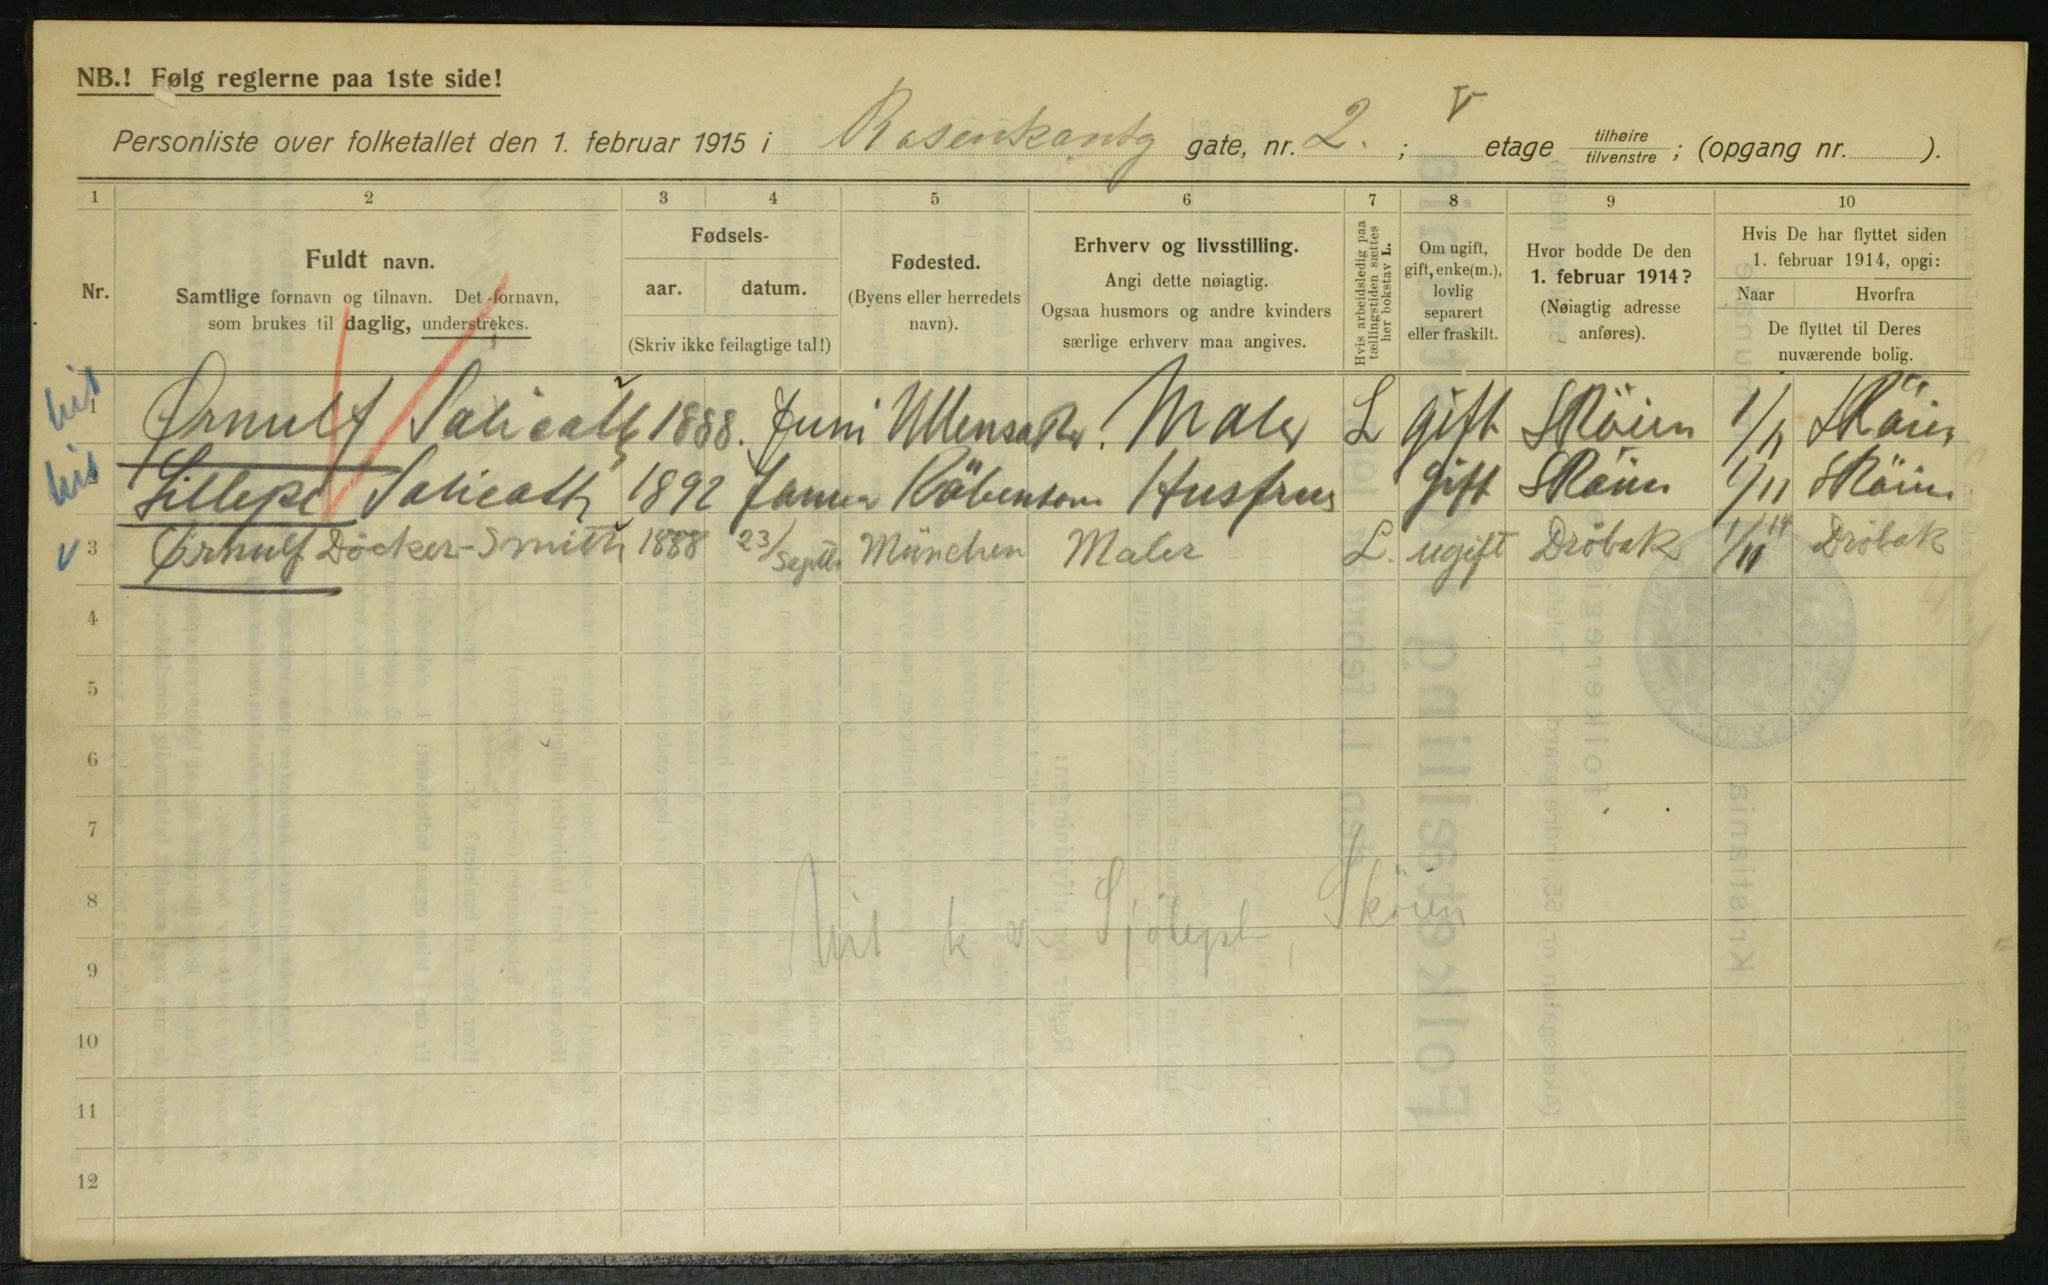 NB.! Følg reglerne paa 1ste side!
Personliste over folketallet den 1. februar 1915 i Rosenkantg gate, nr. 2. ; V etage tilhøire / tilvenstre ; (opgang nr. ).
1 2 3 4 5 6 7 8 9 10
Nr.
Fuldt navn.
Samtlige fornavn og tilnavn. Det fornavn,
som brukes til daglig, understrekes.
Fødsels-
aar. datum.
(Skriv ikke feilagtige tal!)
Fødested.
(Byens eller herredets
navn).
Erhverv og livsstilling.
Angi dette nøiagtig.
Ogsaa husmors og andre kvinders
særlige erhverv maa angives.
Hvis arbeidsledig paa
tællingstiden sættes
her bokstav L.
Om ugift,
gift, enke(m.),
lovlig
separert
eller fraskilt.
Hvor bodde De den
1. februar 1914?
(Nøiagtig adresse
anføres).
Hvis De har flyttet siden
1. februar 1914, opgi:
Naar Hvorfra
De flyttet til Deres
nuværende bolig.
1 Ørnulf Salicath 1888. Juni Ullensaker. Maler L gift Skøien 1/11 Skøien
Salicath 1892 Januar København Husfrue gift Skøien 1/11 Skøien
3 Ørnulf Døcker-Smith 1888 23/Septbr München Maler L. ugift Drøbak 1/11 14 Drøbak
4
5
6
7
8
Skøien
9
10
11
12